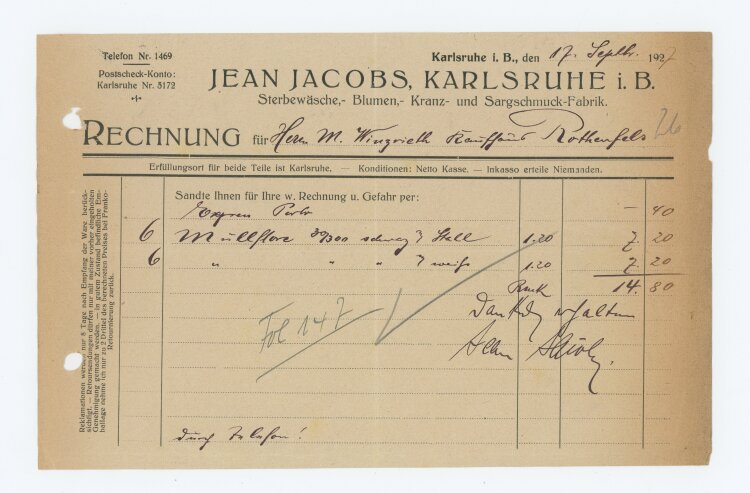 Telefon Nr. 1469
Postscheck-Konto:
Karlsruhe Nr. 5172
Karlsruhe i. B., den 17. Septbr. 1927
JEAN JACOBS, KARLSRUHE i. B.
Sterbewäsche,- Blumen,- Kranz- und Sargschmuck-Fabrik.
RECHNUNG für Herrn M. Kaufhaus Rothenfels
Erfüllungsort für beide Teile ist Karlsruhe. — Konditionen: Netto Kasse. — Inkasso erteile Niemanden.
Sandte Ihnen für Ihre w. Rechnung u. Gefahr per:
Express Porto — 40
6 Müllflore 30/300 schwarz 1.20 7. 20
6 " " " weiss 1.20 7. 20
14. 80
Dankend erhalten
Jean Jacobs.
Fol 147
durch Telefon!
Reklamationen werden nur 8 Tage nach Empfang der Ware berück-
sichtigt. — Retoursendungen dürfen nur mit meiner vorher eingeholten
Genehmigung gemacht werden. — In gutem Zustand befindliche Em-
ballage nehme ich nur zu 2 Drittel des berechneten Preises bei Franko-
Retournierung zurück.